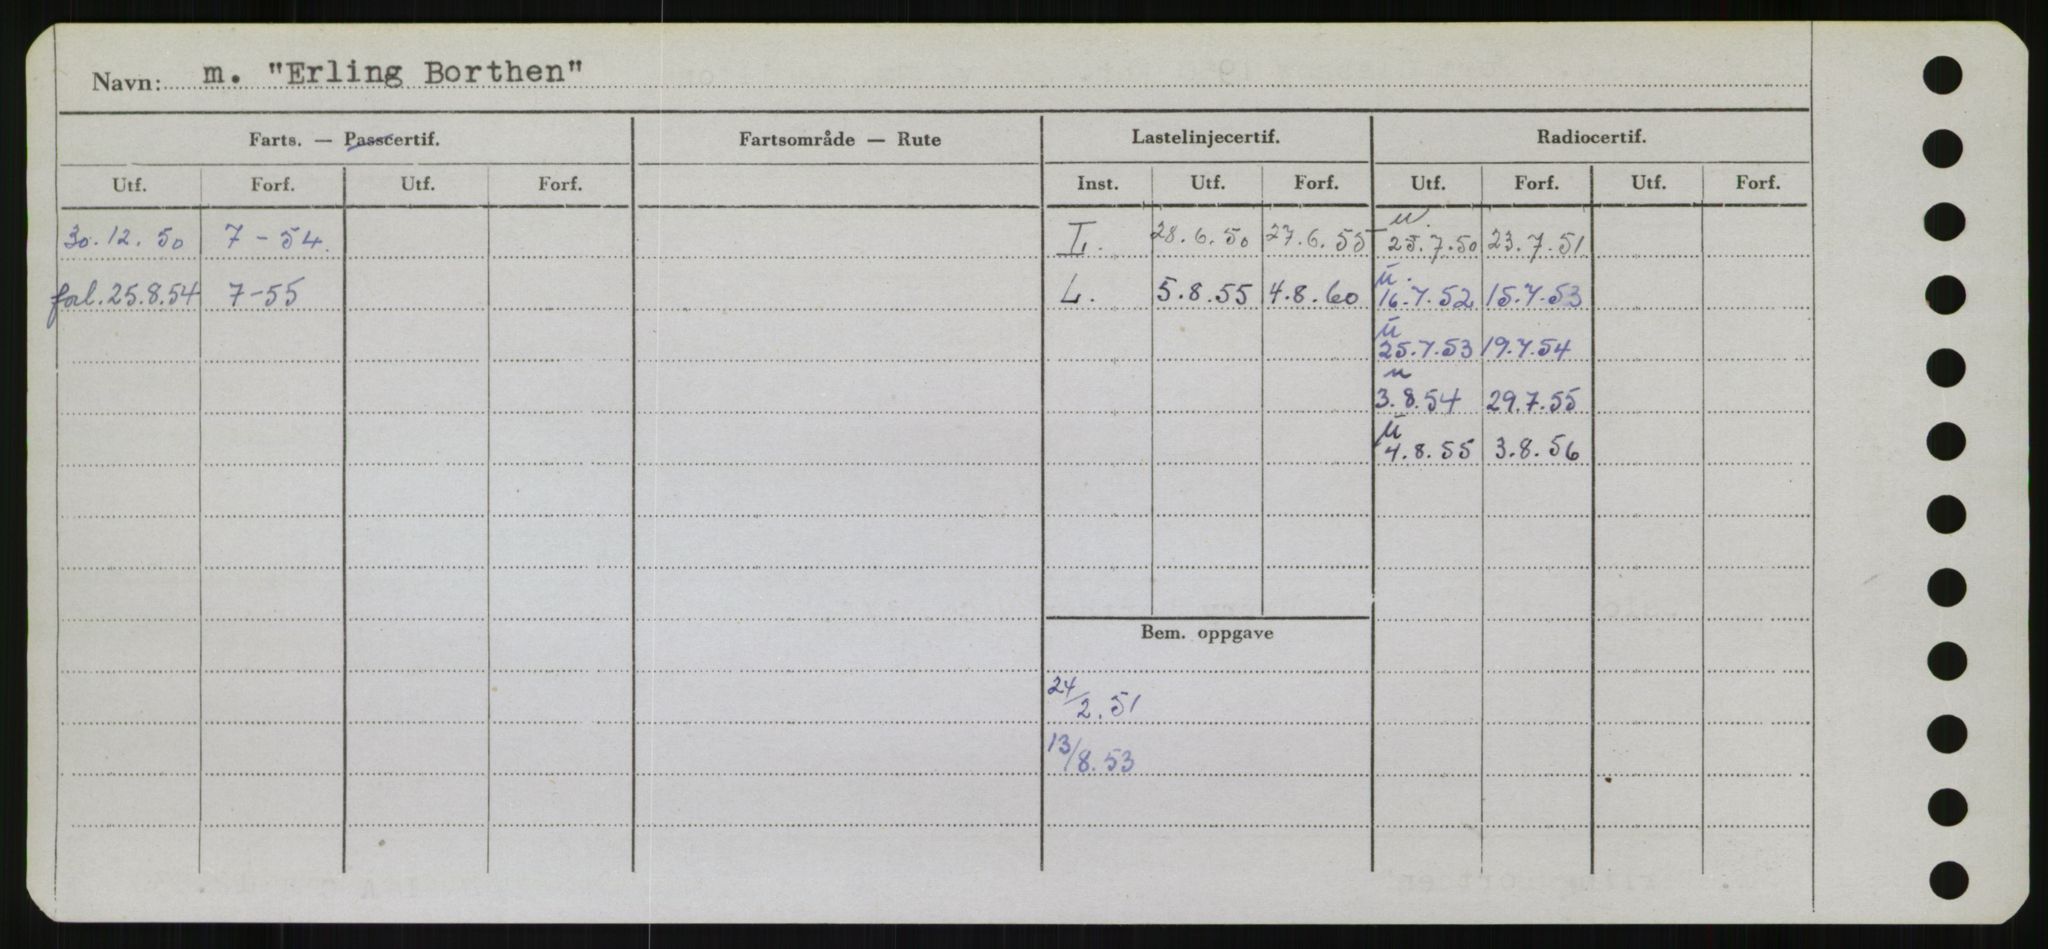 Navn: m. "Erling Borthen"
Farts. — Passcertif. Fartsområde — Rute Lastelinjecertif. Radiocertif.
Utf. Forf. Utf. Forf. Inst. Utf. Forf. Utf. Forf. Utf. Forf.
u.
30.12.50 7-54. L. 28.6.50 27.6.55 25.7.50 23.7.51
u.
forl. 25.8.54 7-55 L. 5.8.55 4.8.60 16.7.52 15.7.53
u
25.7.53 19.7.54
u
3.8.54 29.7.55
u
4.8.55 3.8.56
Bem. oppgave
24/2.51
13/8.53